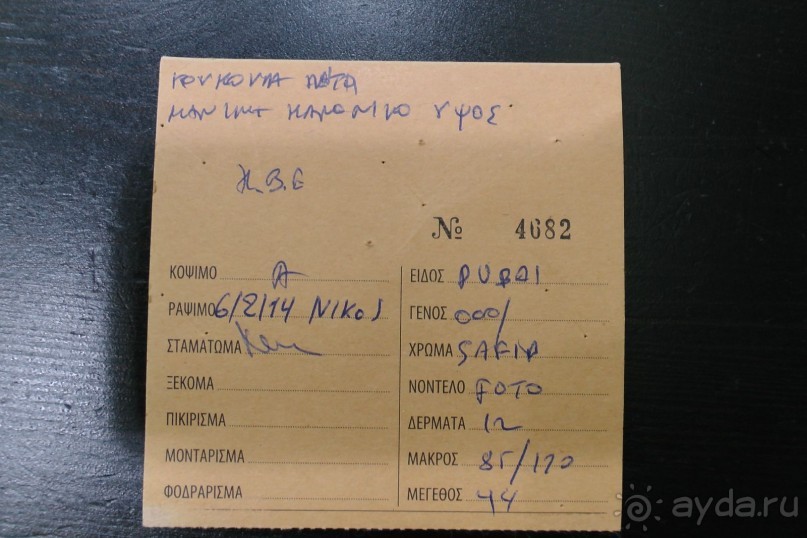 ΚΟΥΚΟΥΛΑ ΠΕΤΑ
ΜΑΝΙΚΙ ΚΑΝΟΝΙΚΟ ΥΨΟΣ
Β.Ε
№ 4682
ΚΟΨΙΜΟ A
ΡΑΨΙΜΟ 6/2/14 ΝΙΚΟS
ΣΤΑΜΑΤΩΜΑ
ΞΕΚΟΜΑ
ΠΙΚΙΡΙΣΜΑ
ΜΟΝΤΑΡΙΣΜΑ
ΦΟΔΡΑΡΙΣΜΑ
ΕΙΔΟΣ DUBAI
ΓΕΝΟΣ 000/
ΧΡΩΜΑ SAFIR
ΝΟΝΤΕΛΟ FOTO
ΔΕΡΜΑΤΑ 12
ΜΑΚΡΟΣ 85/170
ΜΕΓΕΘΟΣ 44
ayda.ru